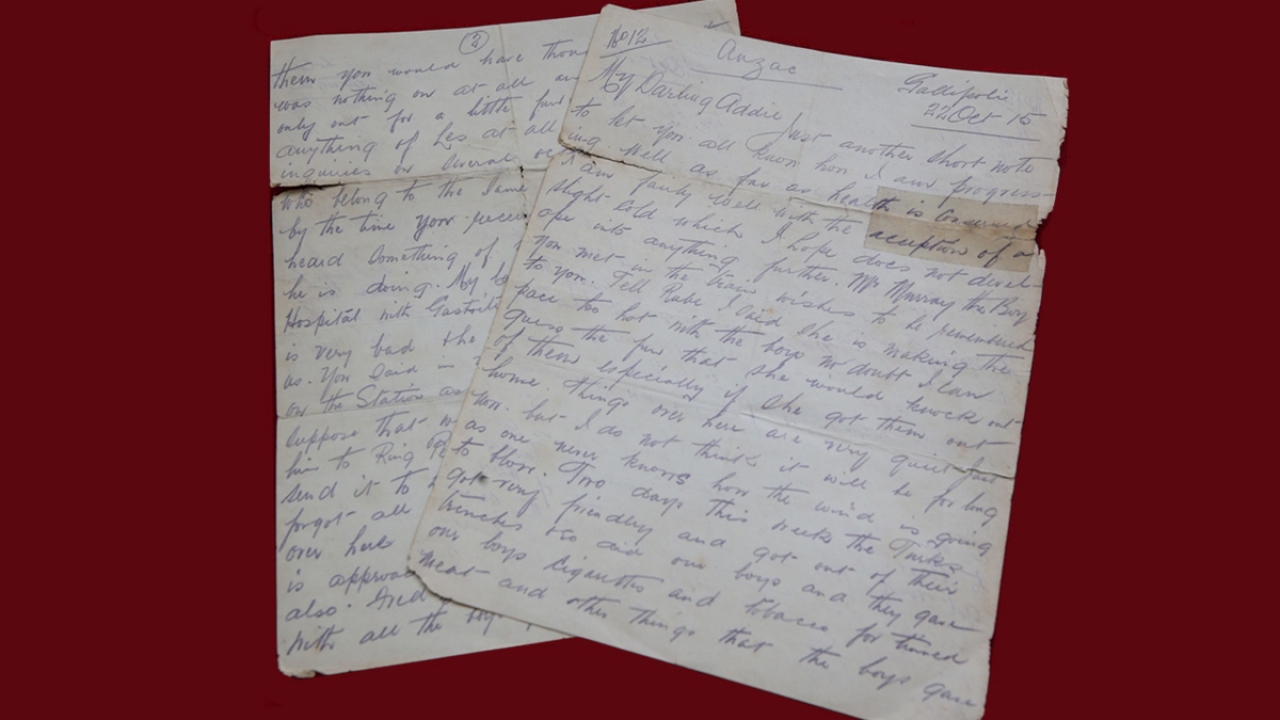 No 12
Anzac
Gallipoli
22 Oct 15
My Darling Addie
Just another short note
to let you all know how I am progress-
ing. Well as far as health is concerned
I am fairly well with the aception of a
slight cold which I hope does not devel-
ope into anything further. Mr Murray the Boy
you met in the train wishes to be remembered
to you. Tell Rube I said she is making the
pace too hot with the boys no doubt I can
guess the fun that she would knock out
of them especially if she got them out
home. Things over here are very quiet just
now. but I do not think it will be for long
as one never knows how the wind is going
to blow. Two days this week the Turks
got very friendly and got out of their
trenches so did our boys and they gave
our boys cigarettes and tobacco for tinned
meat and other things that the boys gave
2
them you would have thou
was nothing on at all an
only out for a little fun
anything of Les at all
inquiries on several
who belong to the same
by the time you recei
heard something of
he is doing. My
Hospital with Gastritis
is very bad the
as. You said in
on the Station as
suppose that
him to Ring
send it to
forgot all
over here
is approa
also. And
with all the boys